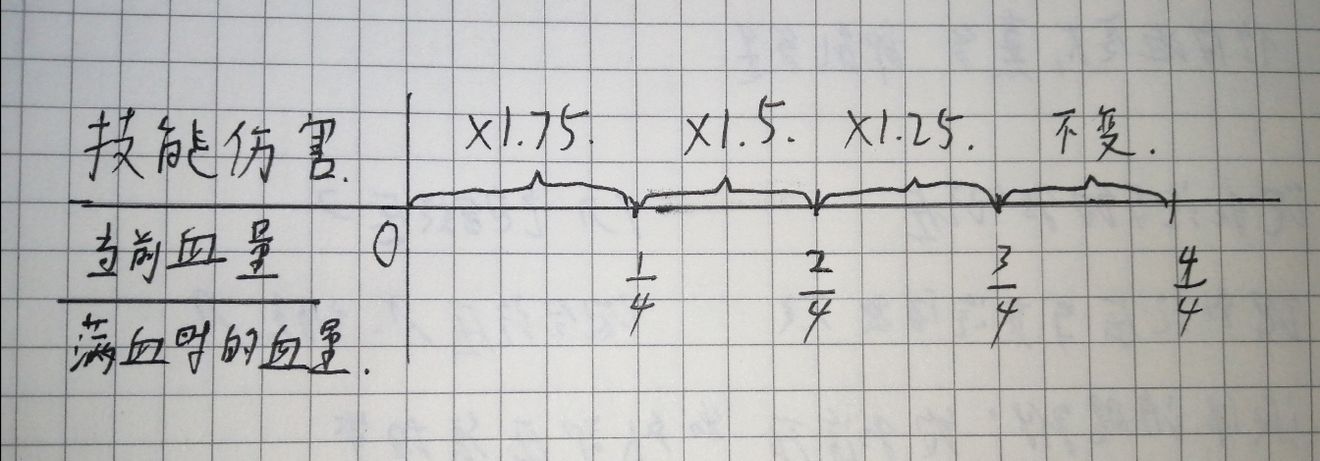 技能伤害. ×1.75. ×1.5. ×1.25. 不变.
当前血量 0 1/4 2/4 3/4 4/4
满血时的血量.